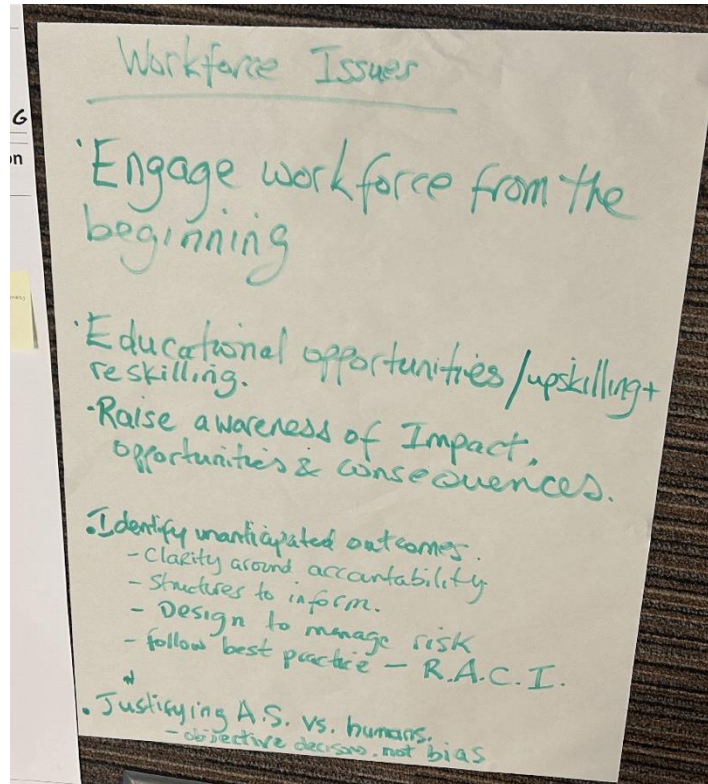 Workforce Issues
G
on
· Engage workforce from the
beginning
· Educational opportunities/upskilling+
reskilling.
· Raise awareness of Impact,
opportunities & consequences.
· Identify unanticipated outcomes.
- Clarity around accountability
- Structures to inform.
- Design to manage risk
- follow best practice - R.A.C.I.
· Justifying A.S. vs. humans.
- objective decisions, not bias